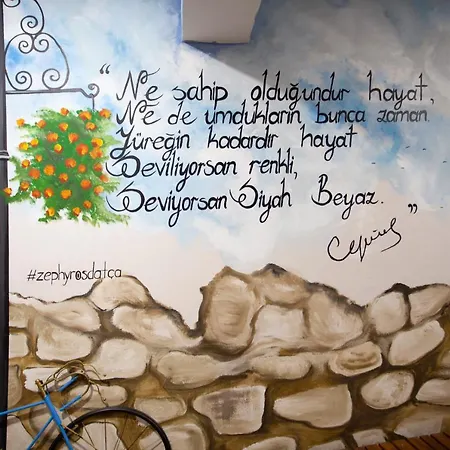 “Ne sahip olduğundur hayat,
Ne de umdukların bunca zaman.
Yüreğin kadardır hayat
Seviliyorsan renkli,
Seviyorsan Siyah Beyaz.”
#zephyrosdatca